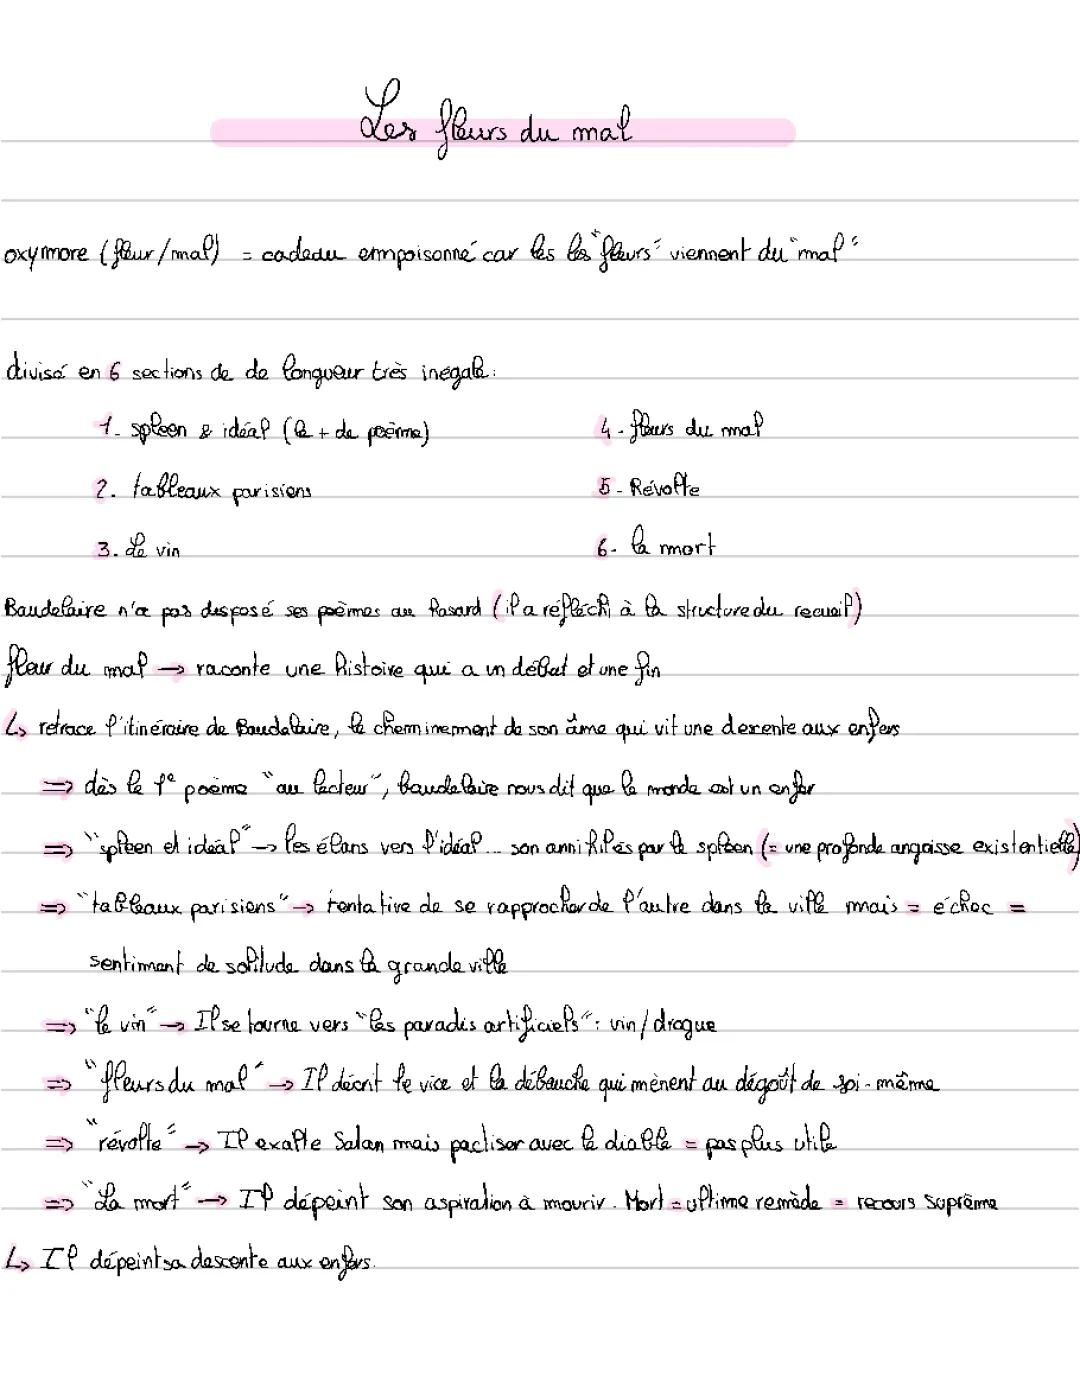 Les fleurs du mal
oxymore (fleur/mal) = cadeau empoisonné car les les "fleurs" viennent du "mal"
divisé en 6 sections de de longueur très inégale:
1. spleen & idéal (le + de poème)
4 - fleurs du mal
2. tableaux parisiens
5 - Révolte
3. Le vin
6 - la mort
Baudelaire n'a pas disposé ses poèmes au hasard (il a réfléchi à la structure du recueil)
fleur du mal → raconte une histoire qui a un début et une fin
↳ retrace l'itinéraire de Baudelaire, le cheminement de son âme qui vit une descente aux enfers
⇒ dès le 1e poème "au lecteur", baudelaire nous dit que le monde est un enfer
⇒ "spleen et idéal" → les élans vers l'idéal... son annihilés par le spleen (= une profonde angoisse existentielle)
⇒ "tableaux parisiens" → tentative de se rapprocher de l'autre dans la ville mais = échec =
sentiment de solitude dans la grande ville
⇒ "le vin" → Il se tourne vers "les paradis artificiels": vin/drogue
⇒ "fleurs du mal" → Il décrit le vice et la débauche qui mènent au dégoût de soi-même
⇒ "révolte" → Il exalte Satan mais pactiser avec le diable = pas plus utile
⇒ "La mort" → Il dépeint son aspiration à mourir. Mort = ultime remède = recours suprême
↳ Il dépeint sa descente aux enfers.